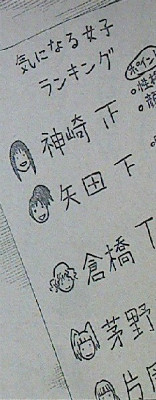 気になる女子
ランキング
ポイン
神崎 下
矢田 下
倉橋 丅
茅野
片